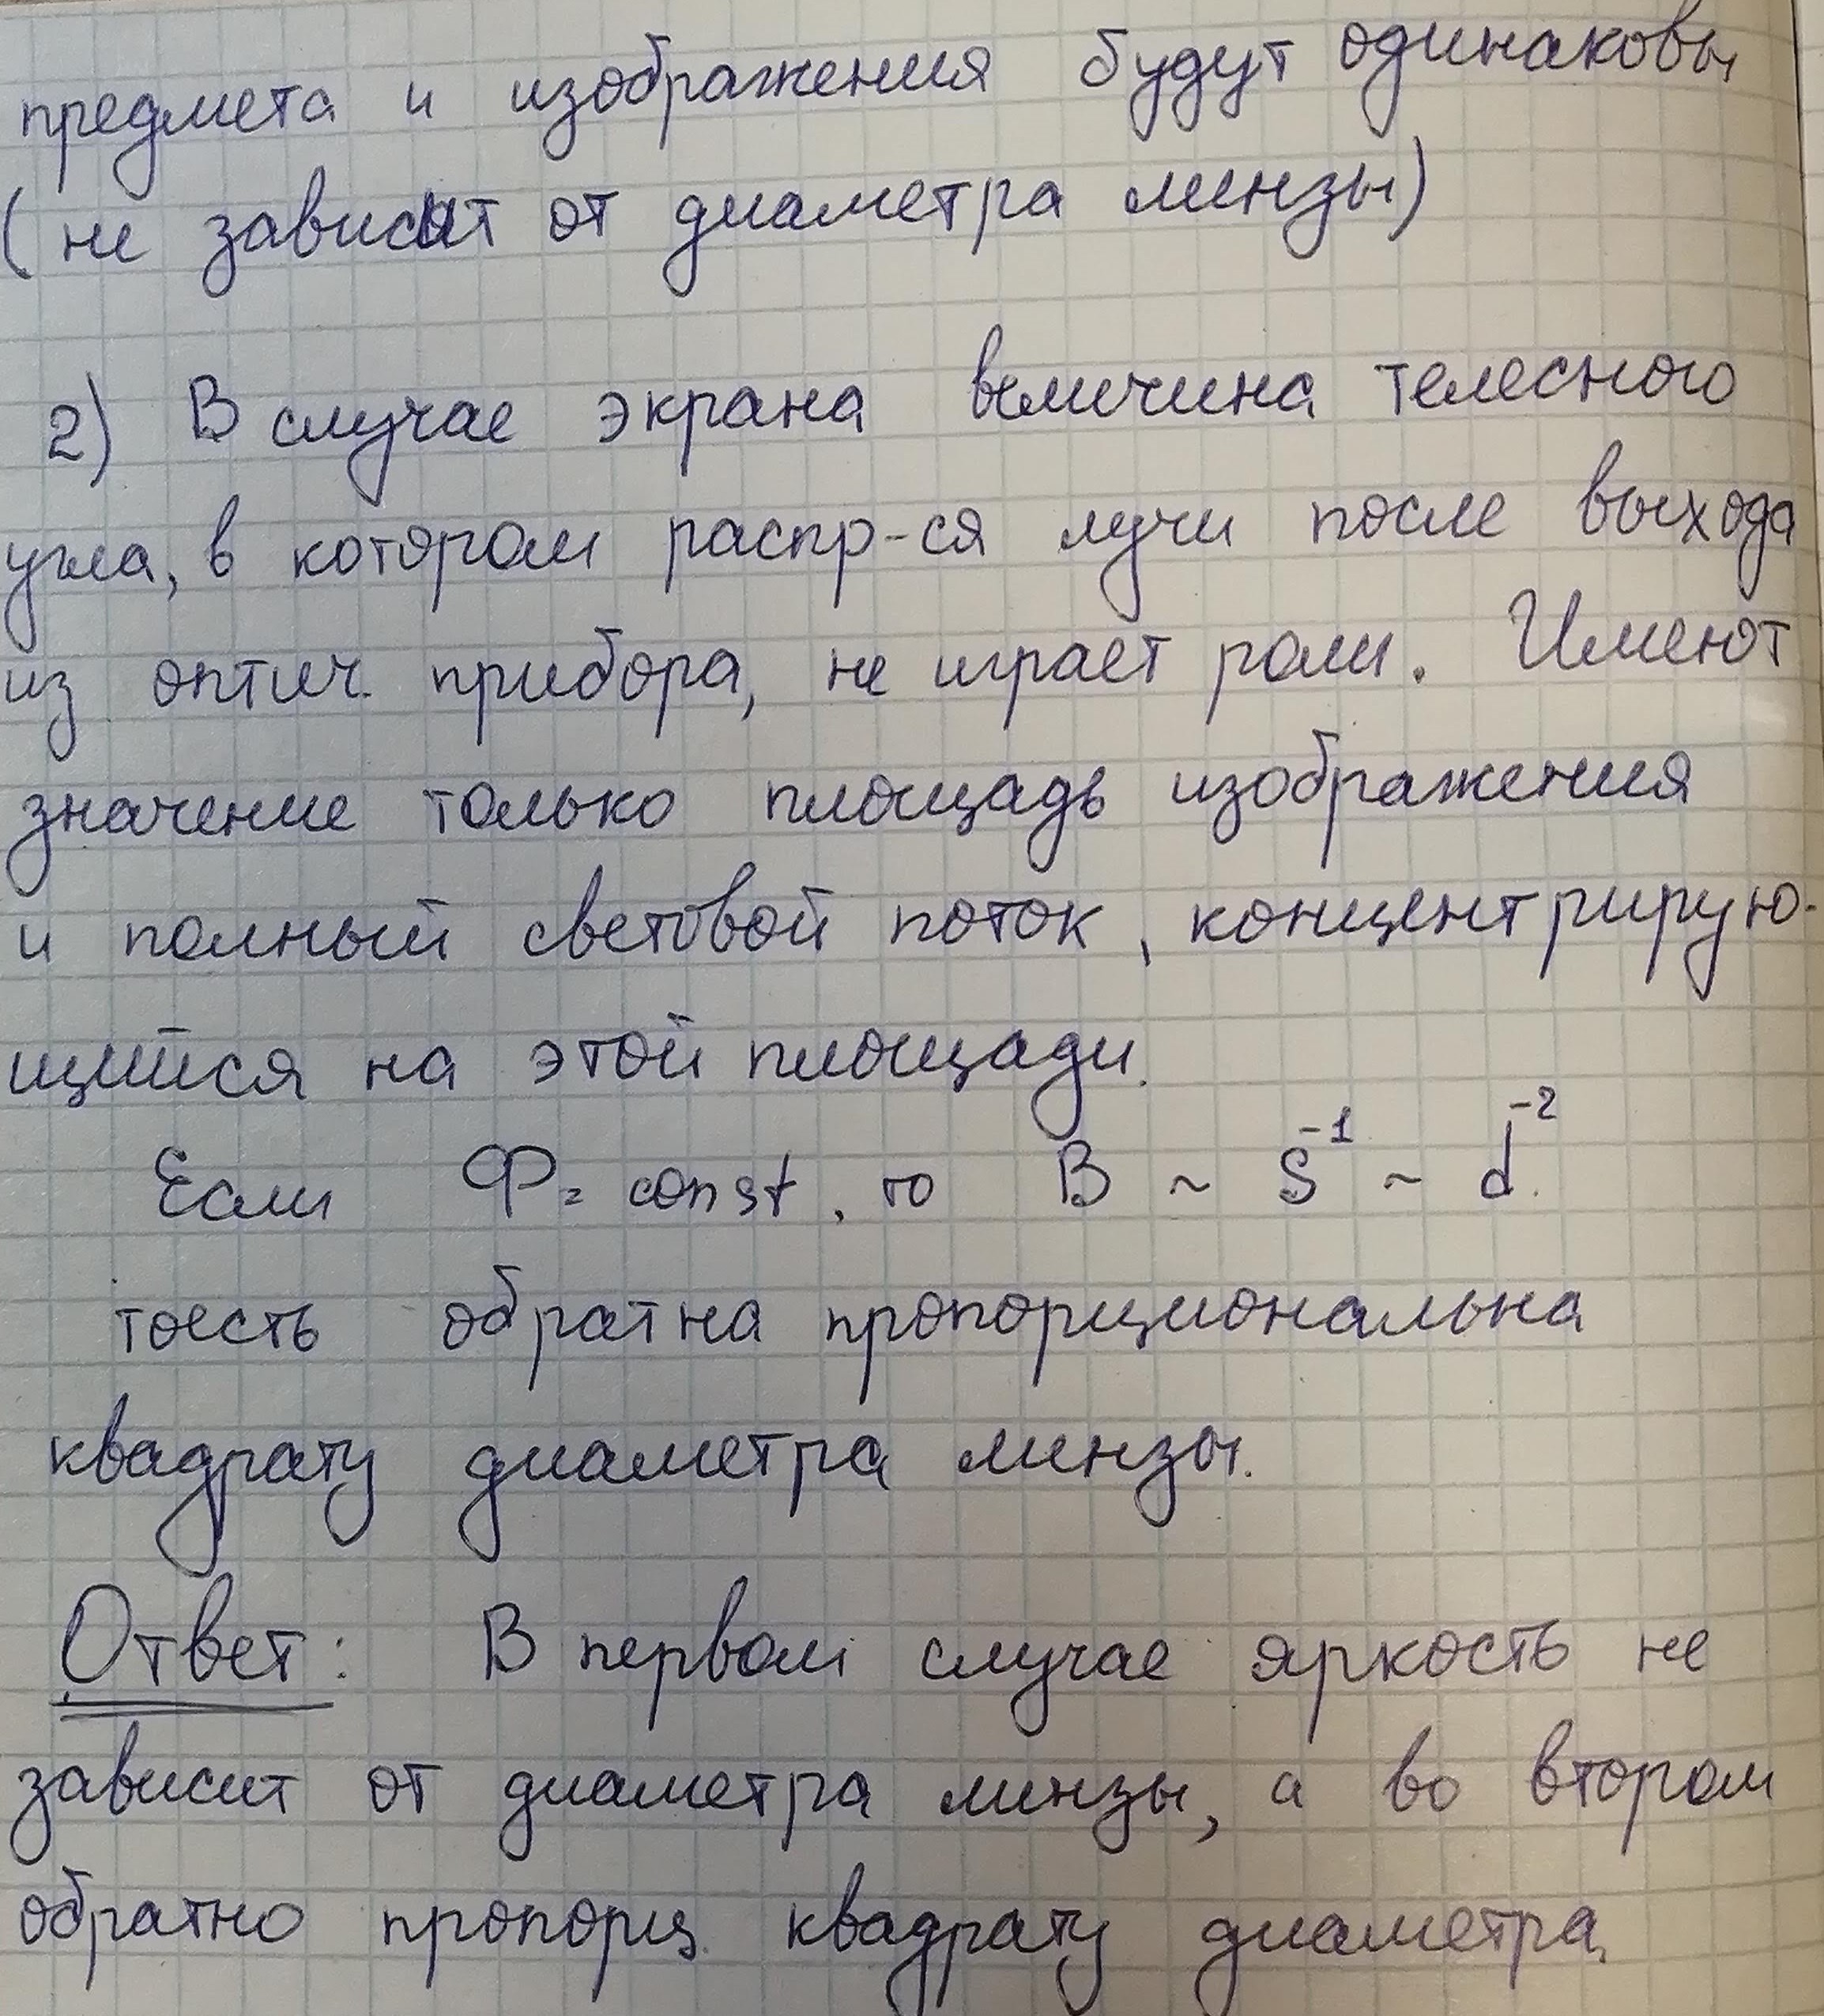 предмета и изображения будут одинаковы
(не зависит от диаметра линзы)
2) В случае экрана величина телесного
угла, в котором распр-ся лучи после выхода
из оптич. прибора, не играет роли. Имеют
значение только площадь изображения
и полный световой поток, концентрирую-
щийся на этой площади.
Если Ф = const, то B ~ S⁻¹ ~ d⁻².
тоесть обратна пропорциональна
квадрату диаметра линзы.
Ответ: В первом случае яркость не
зависит от диаметра линзы, а во втором
обратно пропорц. квадрату диаметра